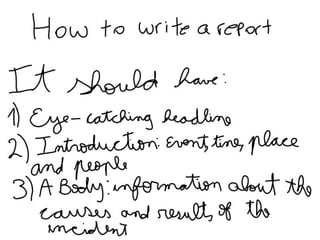 How to write a report
It should have:
1) Eye-catching headline
2) Introduction: event, time, place
and people
3) A Body: information about the
causes and results of the
incident